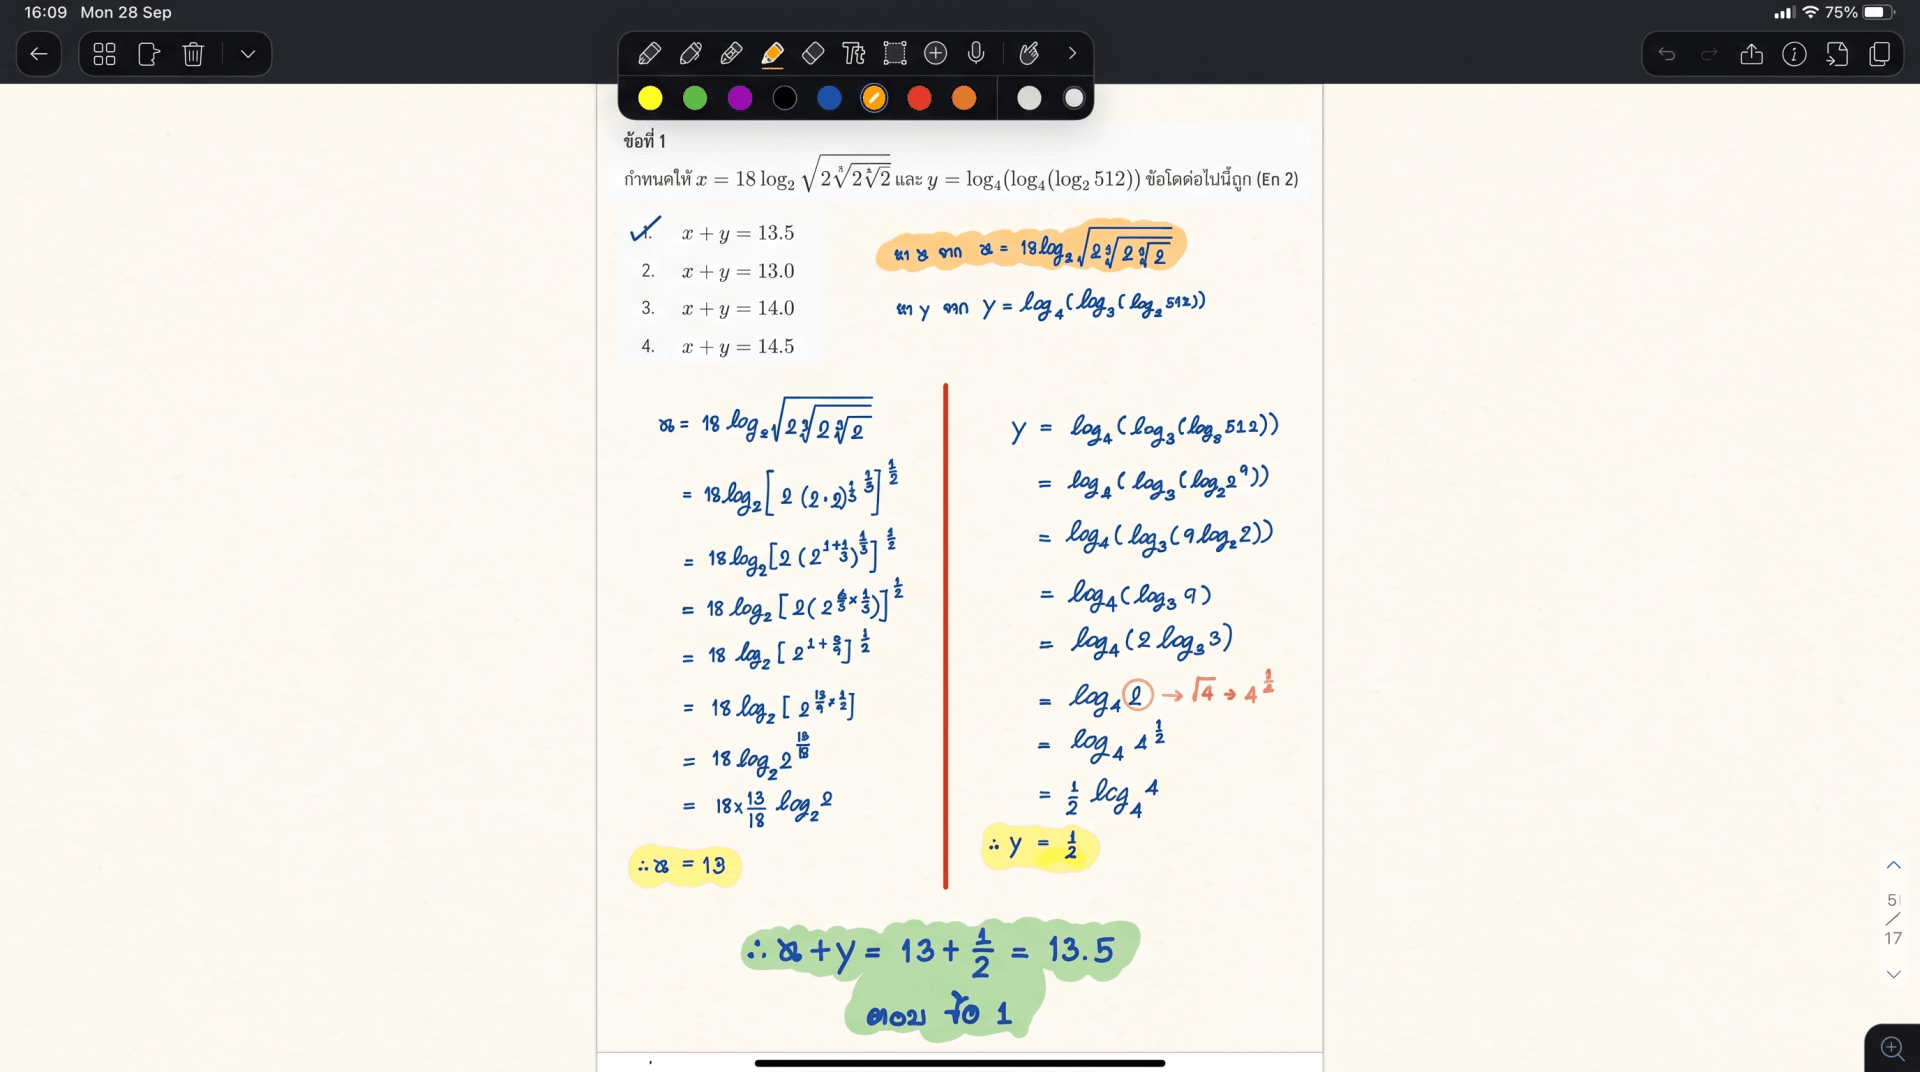 16:09 Mon 28 Sep
75%
Tt
ข้อที่ 1
กำหนดให้ x = 18 log₂ √(2∛(2∛2)) และ y = log₄(log₄(log₂ 512)) ข้อใดต่อไปนี้ถูก (En 2)
1. x + y = 13.5
2. x + y = 13.0
3. x + y = 14.0
4. x + y = 14.5
หา x จาก x = 18 log₂ √(2∛(2∛2))
หา y จาก y = log₄(log₃(log₂ 512))
x = 18 log₂ √(2∛(2∛2))
= 18 log₂ [2 (2·2)^(1/3) ^(1/3)]^(1/2)
= 18 log₂ [2 (2^(1+1/3))^(1/3)]^(1/2)
= 18 log₂ [2(2^(4/3 × 1/3))]^(1/2)
= 18 log₂ [2^(1+4/9)]^(1/2)
= 18 log₂ [2^(13/9 × 1/2)]
= 18 log₂ 2^(13/18)
= 18 × 13/18 log₂ 2
∴ x = 13
y = log₄(log₃(log₂ 512))
= log₄(log₃(log₂ 2⁹))
= log₄(log₃(9 log₂ 2))
= log₄(log₃ 9)
= log₄(2 log₃ 3)
= log₄ 2 → √4 → 4^(1/2)
= log₄ 4^(1/2)
= 1/2 log₄ 4
∴ y = 1/2
∴ x + y = 13 + 1/2 = 13.5
ตอบ ข้อ 1
5
/
17